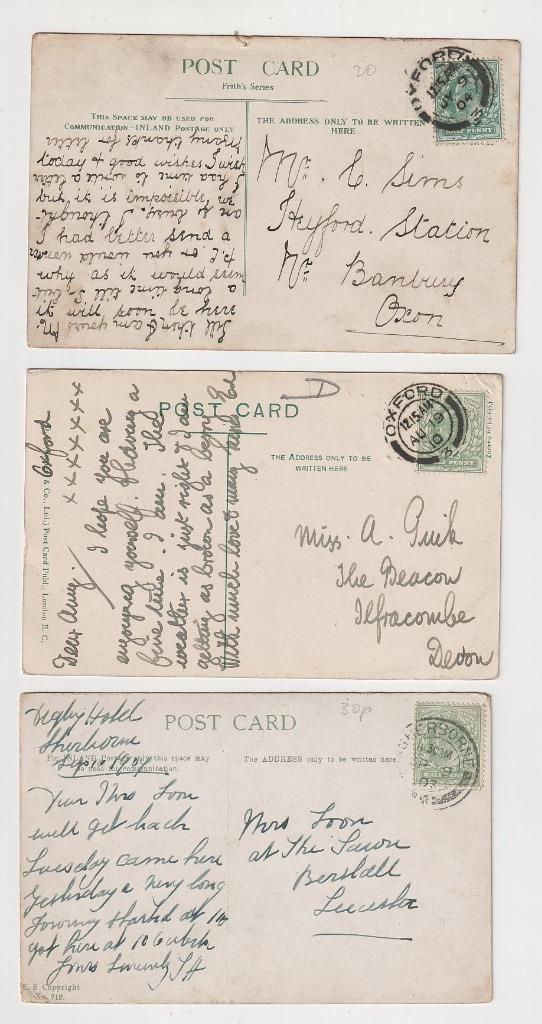 POST CARD
20
Frith's Series
THIS SPACE MAY BE USED FOR
COMMUNICATION - INLAND POSTAGE ONLY
THE ADDRESS ONLY TO BE WRITTEN
HERE.
OXFORD
12.15AM
04
HALF PENNY
Many thanks for letter
today & good wishes I wish
I had time to write a letter
but it is impossible, we
are so busy. I thought
I had better send a
P.C. or you would wonder
why as it would seem
a long time till
it will soon be here
till then I am yours M.
Mr. C. Sims
Heyford. Station
Nr Banbury
Oxon
POST CARD
D
OXFORD
12.15AM
AU 19
10
HALF PENNY
THE ADDRESS ONLY TO BE
WRITTEN HERE
& Co., Ltd.) Post Card Publ., London E.C.
Oxford
x x x x x x x
Dear Amy.
I hope you are
enjoying yourself & having a
fine time. I am. The
weather is just right & I am
getting as brown as a berry
With much love & many
Miss. A. Quik
The Beacon
Ilfracombe
Devon
POST CARD
30p
SHERBORNE
HALF PENNY
For INLAND Postage only this space may
be used for communication.
The ADDRESS only to be written here
Digby Hotel
Sherborne
Dear Mrs Toon
will get back
Tuesday came here
Yesterday a very long
Journey started at
got here at 10 o'clock
Yours Sincerely
Mrs Toon
at The Lawn
Birstall
Leicester
S. S Copyright
No. 719.